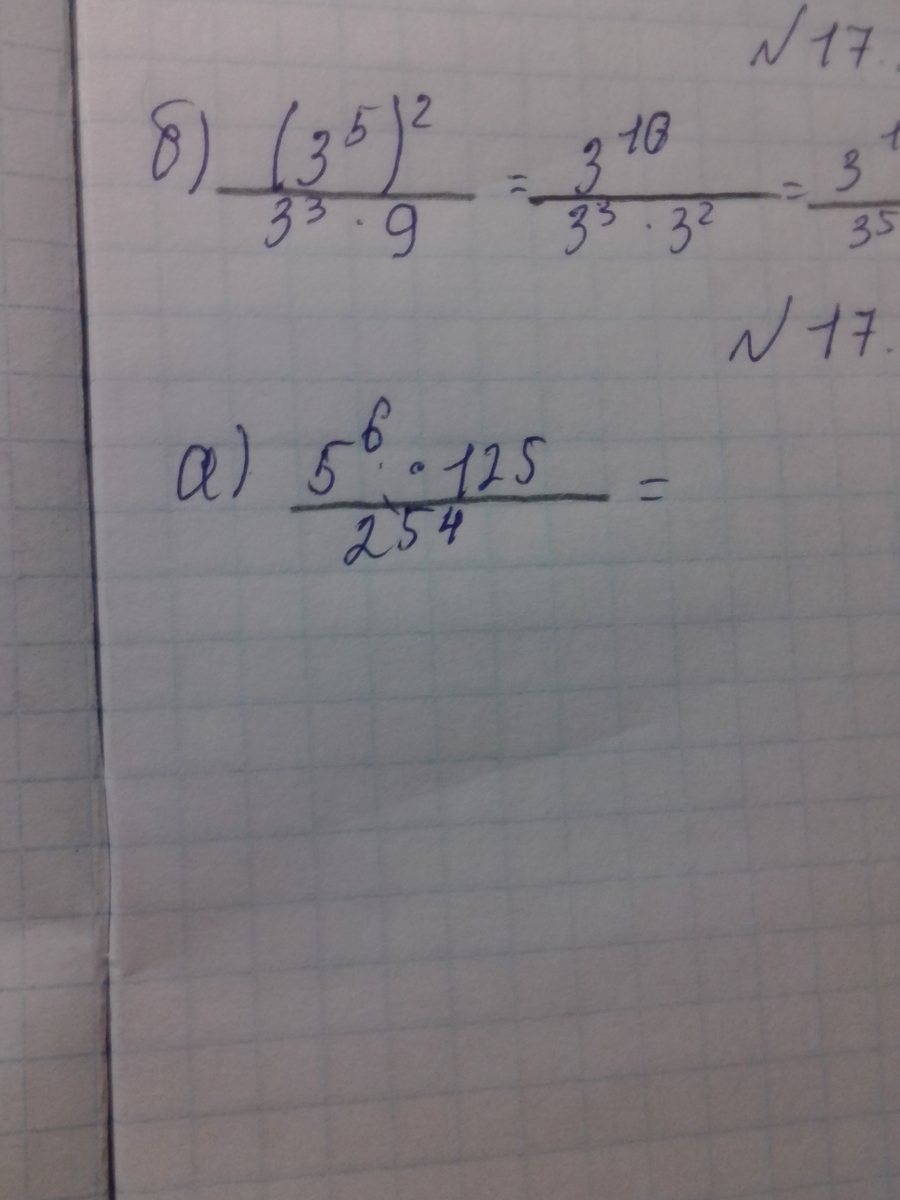 № 17.
б) (3^5)^2 / 3^3 · 9 = 3^10 / 3^3 · 3^2 = 3^1 / 3^5
№ 17.
а) 5^6 · 125 / 25^4 =